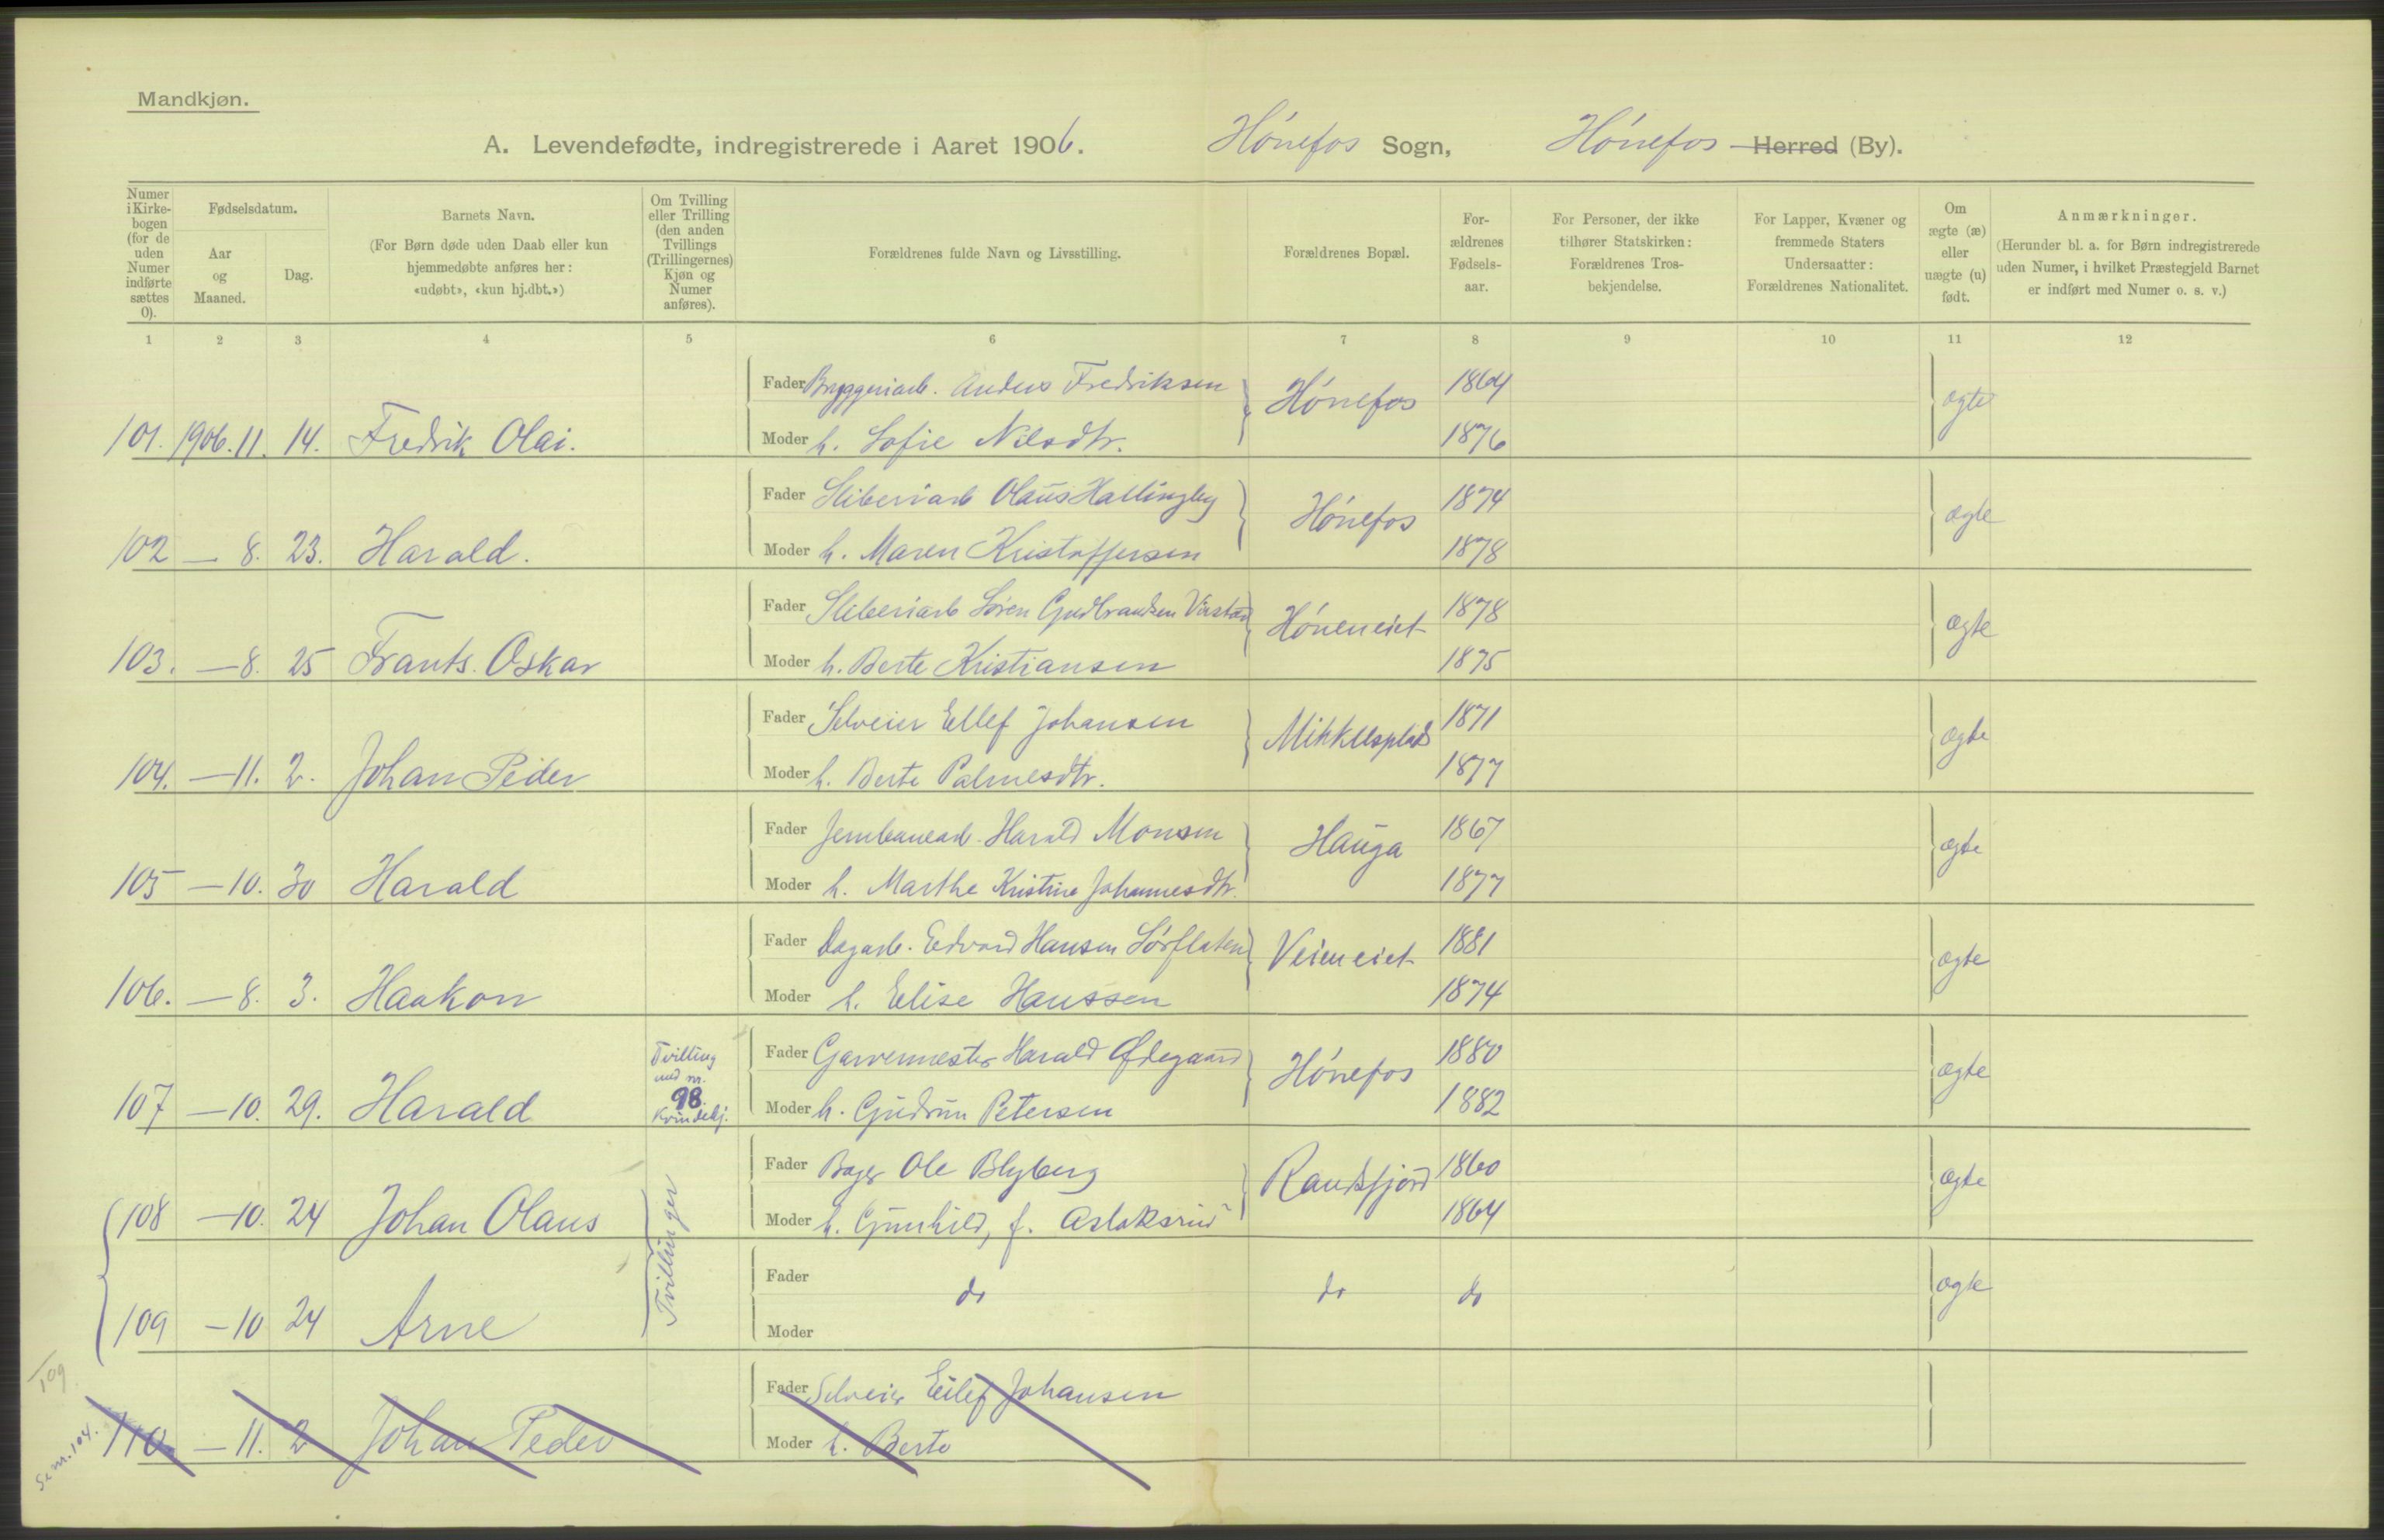 Mandkjøn.
A. Levendefødte, indregistrerede i Aaret 1906. Hónefos Sogn, Hónefos Herred (By).
Numer i Kirkebogen (for de uden Numer indførte sættes 0).
Fødselsdatum.
Aar og Maaned.
Dag.
Barnets Navn.
(For Børn døde uden Daab eller kun hjemmedøbte anføres her: «udøbt», «kun hj.dbt.»)
Om Tvilling eller Trilling (den anden Tvillings (Trillingernes) Kjøn og Numer anføres).
Forældrenes fulde Navn og Livsstilling.
Forældrenes Bopæl.
Forældrenes Fødselsaar.
For Personer, der ikke tilhører Statskirken: Forældrenes Trosbekjendelse.
For Lapper, Kvæner og fremmede Staters Undersaatter: Forældrenes Nationalitet.
Om ægte (æ) eller uægte (u) født.
Anmærkninger.
(Herunder bl. a. for Børn indregistrerede uden Numer, i hvilket Præstegjeld Barnet er indført med Numer o. s. v.)
1 2 3 4 5 6 7 8 9 10 11 12
Fader Bryggeriarb. Anders Fredriksen Hónefos 1864 ægte
101. 1906. 11. 14. Fredrik Olai. Moder h. Sofie Nilsdtr. 1876
Fader Sliberiarb Olaus Hallingby Hónefos 1874 ægte
102 — 8. 23. Harald. Moder h. Maren Kristoffersen 1878
Fader Sliberiarb Sören Gudbrandsen Hóneneiet 1878 ægte
103. — 8. 25 Frants. Oskar Moder h. Berte Kristiansen 1875
Fader Selveier Ellef Johansen Mikkelsplads 1871 ægte
104. — 11. 2. Johan Peder Moder h. Berte Palmesdtr. 1877
Fader Jernbanearb. Harald Monsen Hauga 1867 ægte
105 — 10. 30 Harald Moder h. Marthe Kristine Johannesdtr. 1877
Fader Dagarb. Edvard Hansen Sórflaten Veieneiet 1881 ægte
106. — 8. 3. Haakon Moder h. Elise Hanssen 1874
Tvilling med nr. 98. Kvindekj.
Fader Garvermester Harald Ødegaard Hónefos 1880 ægte
107 — 10. 29. Harald Moder h. Gudrun Petersen 1882
Fader Bager Ole Blyberg Randsfjord 1860 ægte
108 — 10. 24 Johan Olaus Tvillinger Moder h. Gunhild, f. Aslaksrud 1864
Fader do do do ægte
109 — 10 24 Arne Moder
109
Fader Selveier Eilef Johansen
110 — 11. 2 Johan Peder Moder h. Berte
Se nr. 104.